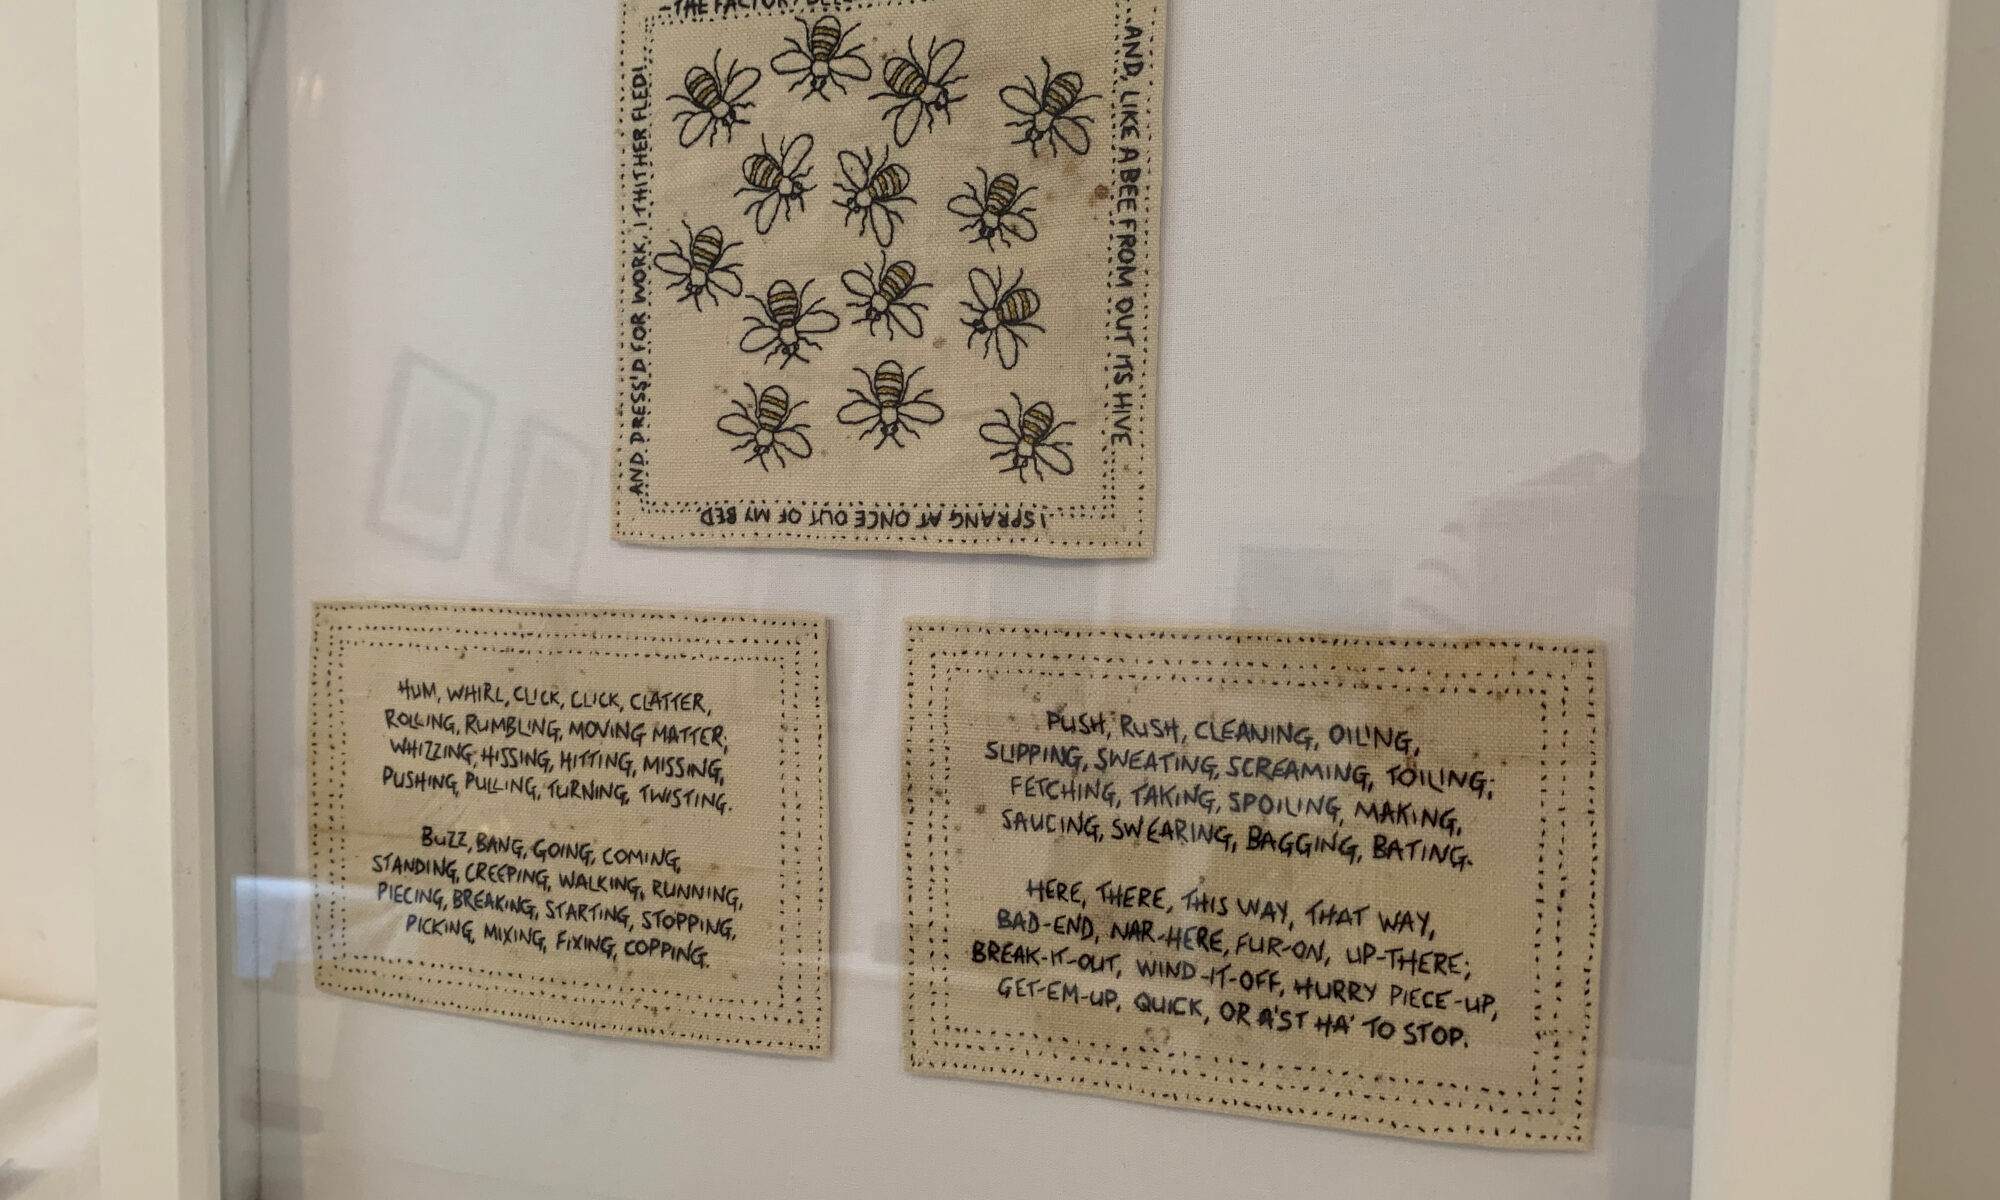 –THE FACTORY BELL
...AND, LIKE A BEE FROM OUT ITS HIVE...
I SPRANG AT ONCE OUT OF MY BED
AND DRESS'D FOR WORK, I THITHER FLED!
HUM, WHIRL, CLICK, CLICK, CLATTER,
ROLLING, RUMBLING, MOVING MATTER;
WHIZZING, HISSING, HITTING, MISSING,
PUSHING, PULLING, TURNING, TWISTING.
BUZZ, BANG, GOING, COMING,
STANDING, CREEPING, WALKING, RUNNING,
PIECING, BREAKING, STARTING, STOPPING,
PICKING, MIXING, FIXING, COPPING.
PUSH, RUSH, CLEANING, OILING,
SLIPPING, SWEATING, SCREAMING, TOILING;
FETCHING, TAKING, SPOILING, MAKING,
SAUCING, SWEARING, BAGGING, BATING.
HERE, THERE, THIS WAY, THAT WAY,
BAD-END, NAR-HERE, FUR-ON, UP-THERE;
BREAK-IT-OUT, WIND-IT-OFF, HURRY PIECE-UP,
GET-EM-UP, QUICK, OR A'ST HA' TO STOP.